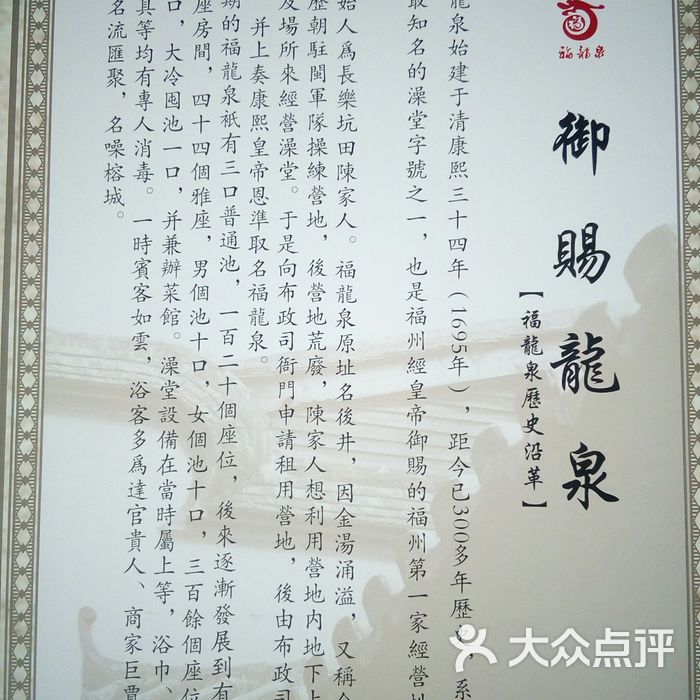 福龍泉
御賜龍泉
【福龍泉歷史沿革】
龍泉始建于清康熙三十四年（1695年），距今已300多年歷史，系
最知名的澡堂字號之一，也是福州經皇帝御賜的福州第一家經營
始人爲長樂坑田陳家人。福龍泉原址名後井，因金湯涌溢，又稱金
歷朝駐閩軍隊操練營地，後營地荒廢，陳家人想利用營地内地下
及場所來經營澡堂。于是向布政司衙門申請租用營地，後由布政司
并上奏康熙皇帝恩準取名福龍泉。
期的福龍泉祇有三口普通池，一百二十個座位，後來逐漸發展到有
座房間，四十四個雅座，男個池十口，女個池十口，三百餘個座位
口，大冷囤池一口，并兼辦菜館。澡堂設備在當時屬上等，浴巾、
具等均有專人消毒。一時賓客如雲，浴客多爲達官貴人、商家巨賈
名流匯聚，名噪榕城。
大众点评